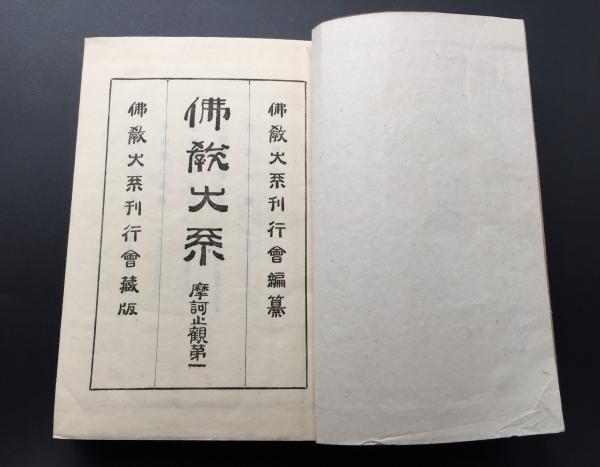 佛教大系刊行會編纂
佛教大系
摩訶止觀第一
佛教大系刊行會藏版